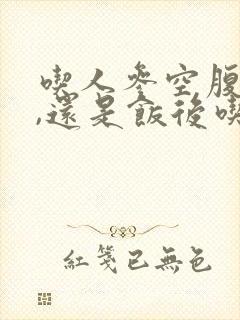 喫人參空腹
,還是飯後喫
紅箋已無色